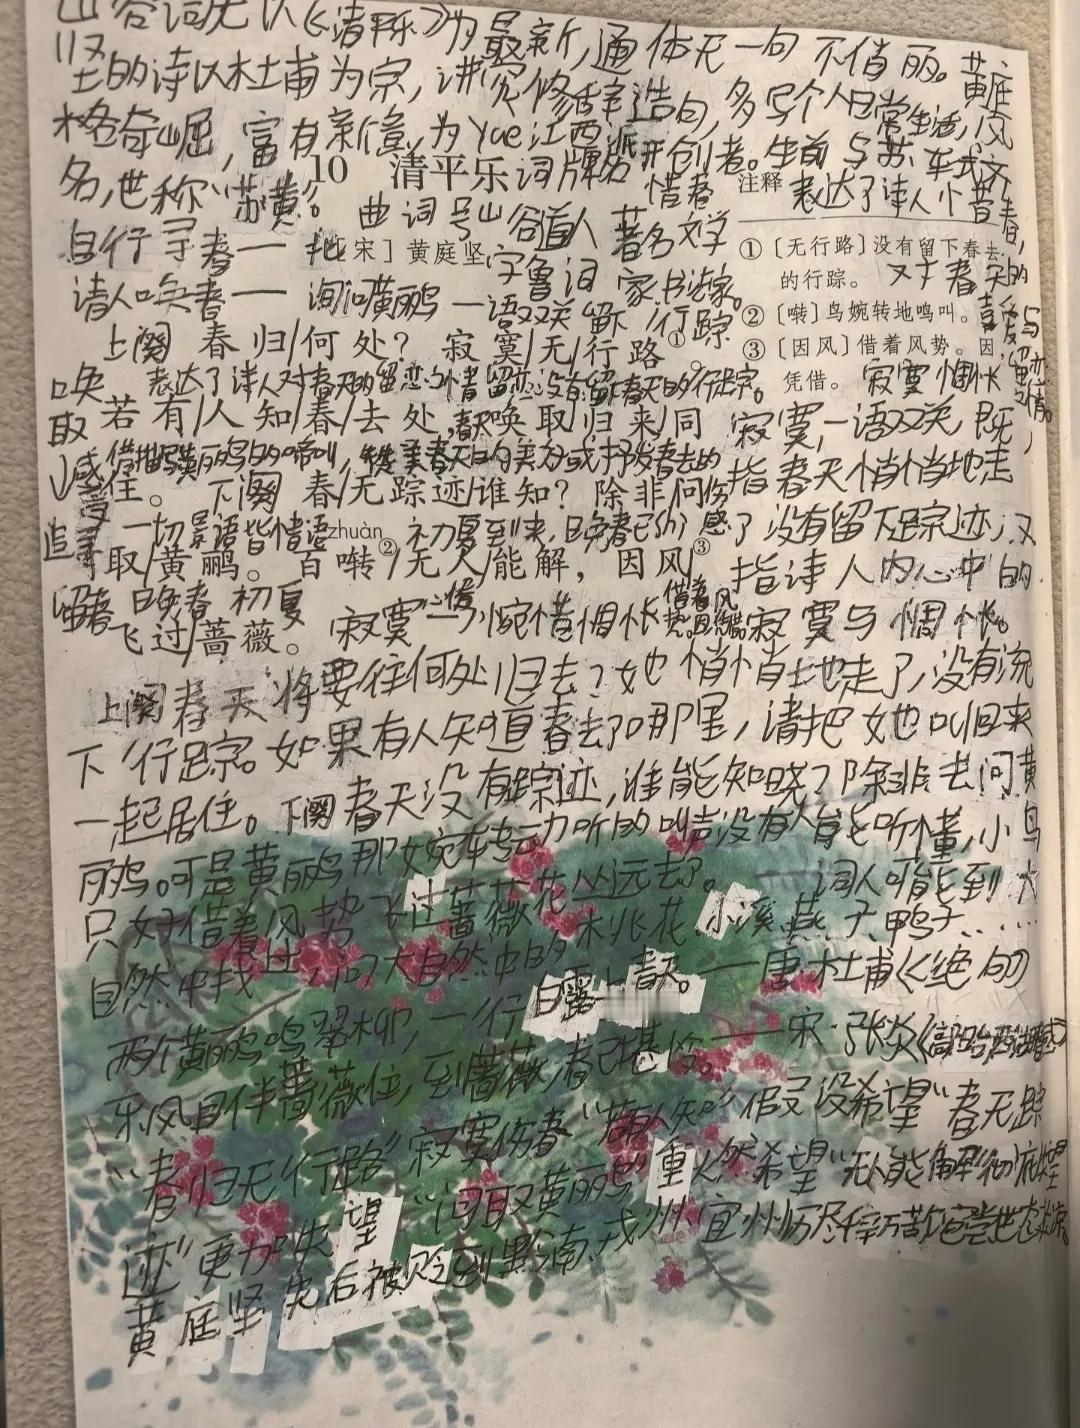 山谷词无以《清平乐》为最新,通体无一句不俏丽。黄庭
坚的诗以杜甫为宗,讲究修辞造句,多写个人日常生活,风
格奇崛,富有新意,为yue江西派开创者。生前与苏轼文
名,世称“苏黄”。
10 清平乐 词牌名 惜春
注释 表达了诗人惜春,
曲词 号山谷道人 著名文学
自行寻春——地
[宋]黄庭坚 字鲁词 家.书法家。
① [无行路]没有留下春去
的行踪。 对春天的喜爱与留恋之情。
请人唤春——询问黄鹂 一语双关 留下/行踪
② [啭]鸟婉转地鸣叫。
上阕 春归/何处?寂寞/无/行路①。
③ [因风]借着风势。因,
凭借。 寂寞 惆怅
唤 表达了诗人对春天的留恋之情
取 若有/人知/春/去处,唤取/归来/同
寂寞,一语双关,既
感受 借描写黄鹂的啼叫
住。 下阕 春/无踪迹/谁知?除非/问
指春天悄悄地走
追寻 一切景语皆情语 zhuàn 初夏到来,晚春已
了没有留下足踪迹,又
取/黄鹂。百啭②/无人/能解,因风③
指诗人内心中的
留春 晚春 初夏
飞过/蔷薇。 寂寞 惋惜惆怅 借着风势。因,凭借。 寂寞与惆怅。
上阕春天将要往何处归去?她悄悄地走了,没有流
下行踪。如果有人知道春去了哪里,请把她叫回来
一起居住。下阕春天没有踪迹,谁能知晓?除非去问黄
鹂。可是黄鹂那婉转动听的叫声没有人能听懂,小鸟
只好借着风势飞过蔷薇花丛远去了。——词人可能到大
自然中找过,问大自然中的桃花 小溪 燕子 鸭子……
两个黄鹂鸣翠柳,一行白鹭上青天。——唐·杜甫《绝句》
东风且伴蔷薇住,到蔷薇,春已堪怜。——宋·张炎《高阳台·西湖春感》
“春归无行路”寂寞伤春 “若有人知” 假设没希望“春无踪
迹”更加失望 “问取黄鹂”重燃希望“无人能解”彻底失望
黄庭坚先后被贬到黔南、戎州、宜州历尽千辛万苦饱尝世态炎凉。